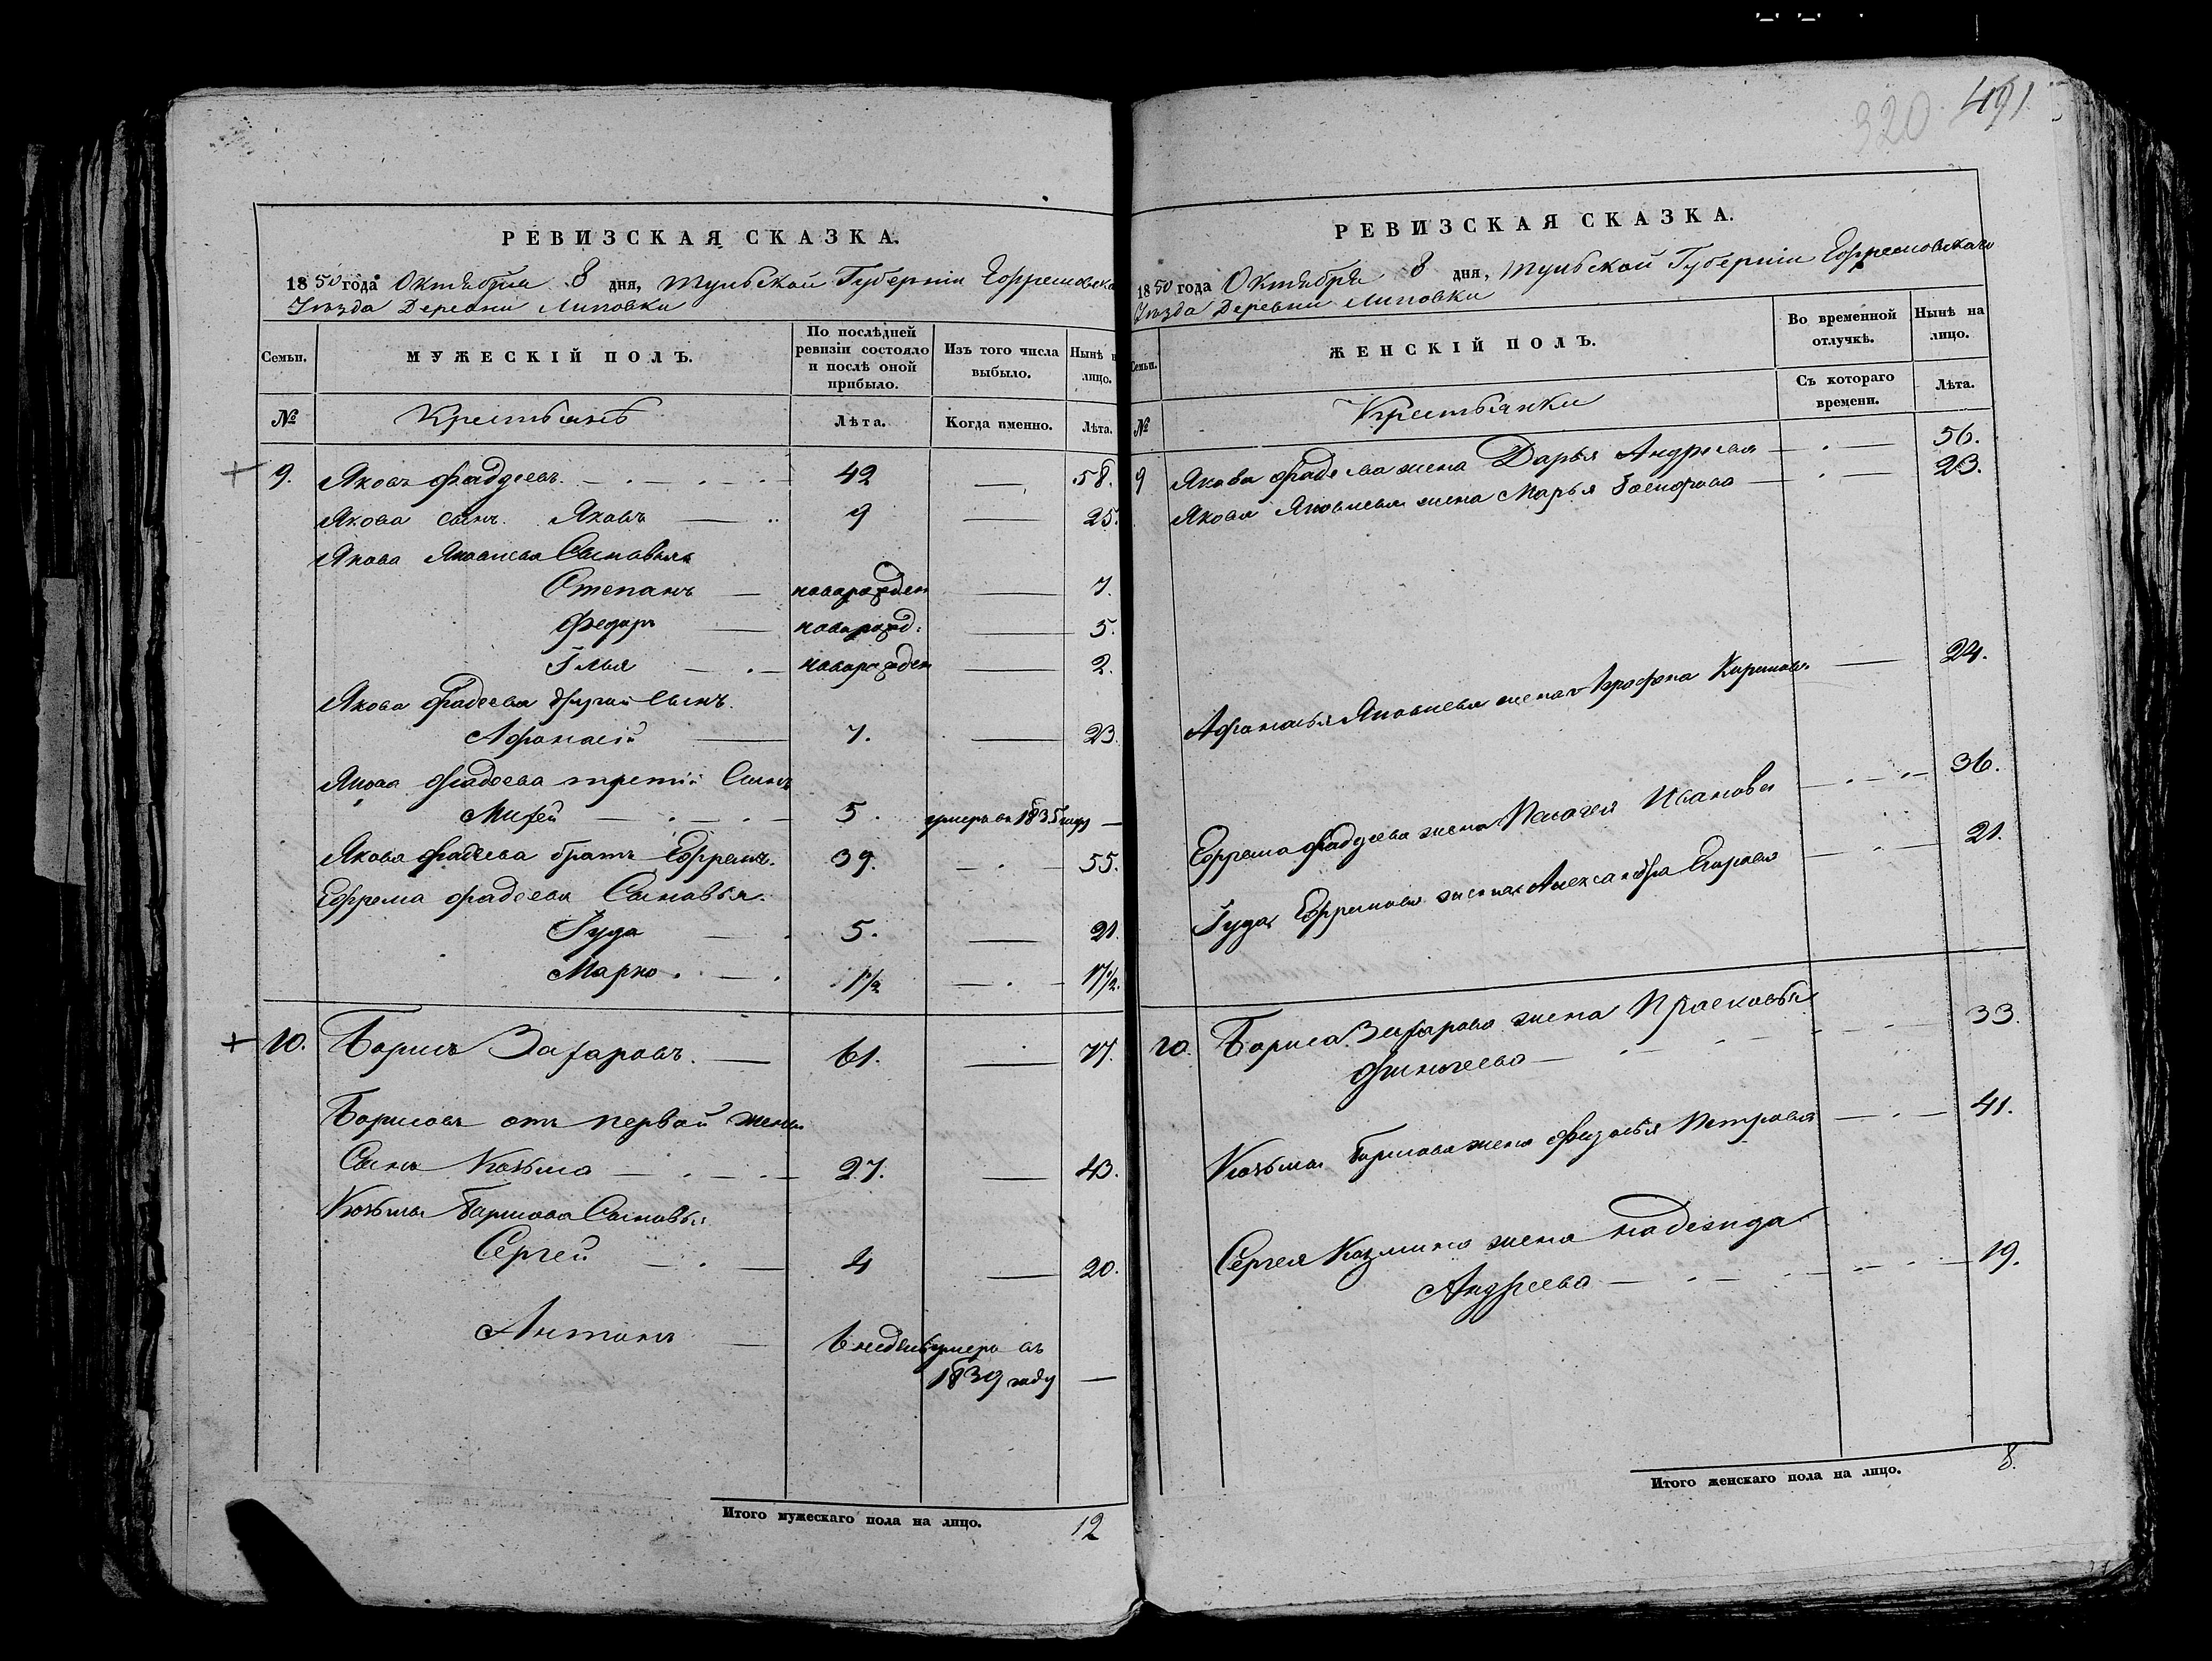 320 491
РЕВИЗСКАЯ СКАЗКА.
1850 года Октября 8 дня, Тульской Губернiи Ефремовска
Уезда Деревни Липовки
Семьи.
МУЖЕСКІЙ ПОЛЪ.
По послѣдней ревизіи состояло и послѣ оной прибыло.
Изъ того числа выбыло.
Нынѣ н лицо.
№
Крестьянѣ
Лѣта.
Когда именно.
Лѣта.
9. Яковъ Фадѣевъ. 42 — 58.
Якова сынъ Яковъ — 9 — 25.
Якова Яковлева Сыновья
Степанъ — новорожден — 7.
Федоръ — новорожд: — 5.
Iлья — новорожден — 2.
Якова Фадеева другой Сынъ.
Афонасiй — 7. — 23.
Якова Фадеева третiй Сынъ
Михей — 5. умеръ въ 1835 году —
Якова Фадеева братъ Ефремъ. 39. — 55.
Ефрема Фадеева Сыновья.
Iуда — 5. — 21.
Марко. — 1½ — 17½.
10. Борисъ Захаровъ. — 61. — 77.
Борисова отъ первой жены
Сынъ Козьма — 27. — 43.
Козьмы Борисова Сыновья
Сергей — 4 — 20.
Антонъ — 6 недель умеръ въ
1839 году —
Итого мужескаго пола на лицо. 12
РЕВИЗСКАЯ СКАЗКА.
1850 года Октября 8 дня, Тульской Губернiи Ефремовскаго
Уезда Деревни Липовки
Семьи.
ЖЕНСКІЙ ПОЛЪ.
Во временной отлучкѣ.
Нынѣ на лицо.
Съ котораго времени.
Лѣта.
№
Крестьянки
9 Якова Фадеева жена Дарья Андреева — 56.
Якова Яковлева жена Марья — 23.
Афонасья Яковлева жена Карпова — 24.
Ефрема Фадеева жена Пелагея Иванова — 36.
Iуды Ефремова жена Александра — 21.
10. Бориса Захарова жена Прасковья
33.
Козьмы Борисова жена Федосья Петрова — 41.
Сергея Козмина жена Надежда
Андреева — 19.
Итого женскаго пола на лицо. 8.